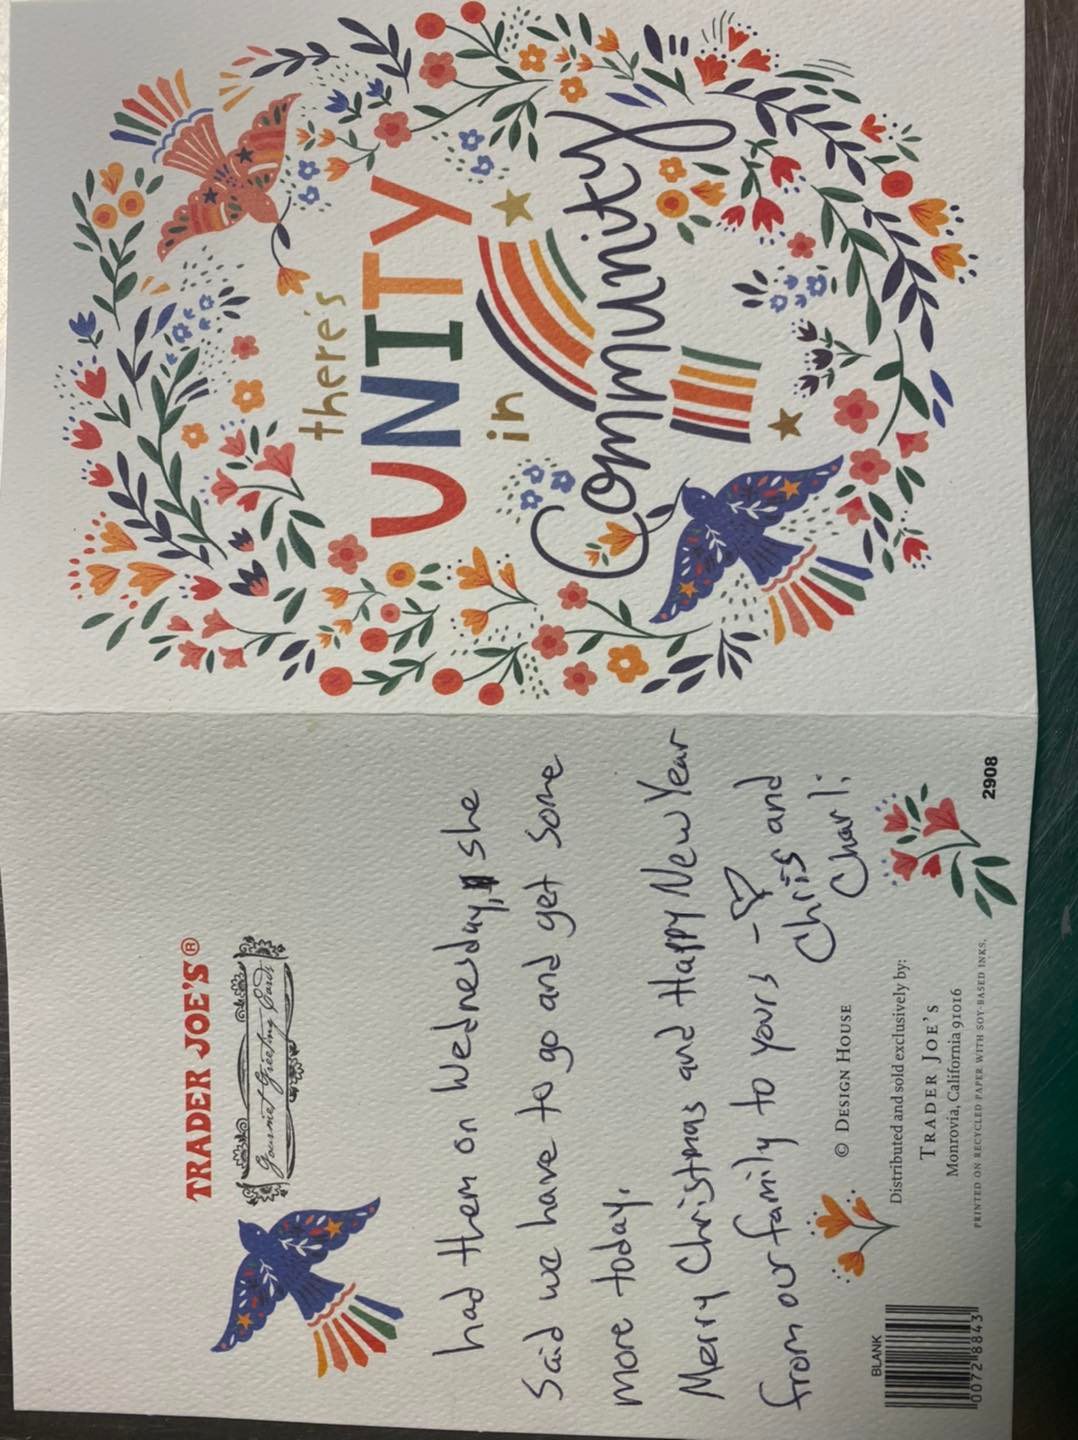 there's
UNITY
in
Community
TRADER JOE'S®
Gourmet Greeting Cards
had them on Wednesday, she
said we have to go and get some
more today.
Merry Christmas and Happy New Year
from our family to yours - ♡
Chris and
Charli
© DESIGN HOUSE
Distributed and sold exclusively by:
TRADER JOE'S
Monrovia, California 91016
PRINTED ON RECYCLED PAPER WITH SOY-BASED INKS.
BLANK
00728843
2908